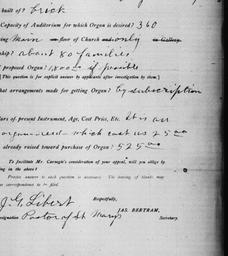 built of? brick
Capacity of Auditorium for which Organ is desired? 360
Main floor of Church only
ship? about 80 families
proposed Organ? 1,800 00 if possible
[This question is for explicit answer by applicants after investigation by them.]
hat arrangements made for getting Organ? by subscription
lars of present Instrument, Age, Cost Price, Etc. It is an
organ which cost us
already raised toward purchase of Organ? 525 00
To facilitate Mr. Carnegie's consideration of your appeal, will you oblige by
ing in the above?
Precise answer to each question is necessary. The leaving of blanks may
correspondence to be filed.
Respectfully,
J. G. Libert
JAS. BERTRAM,
Secretary.
esignation Pastor of St Mary's